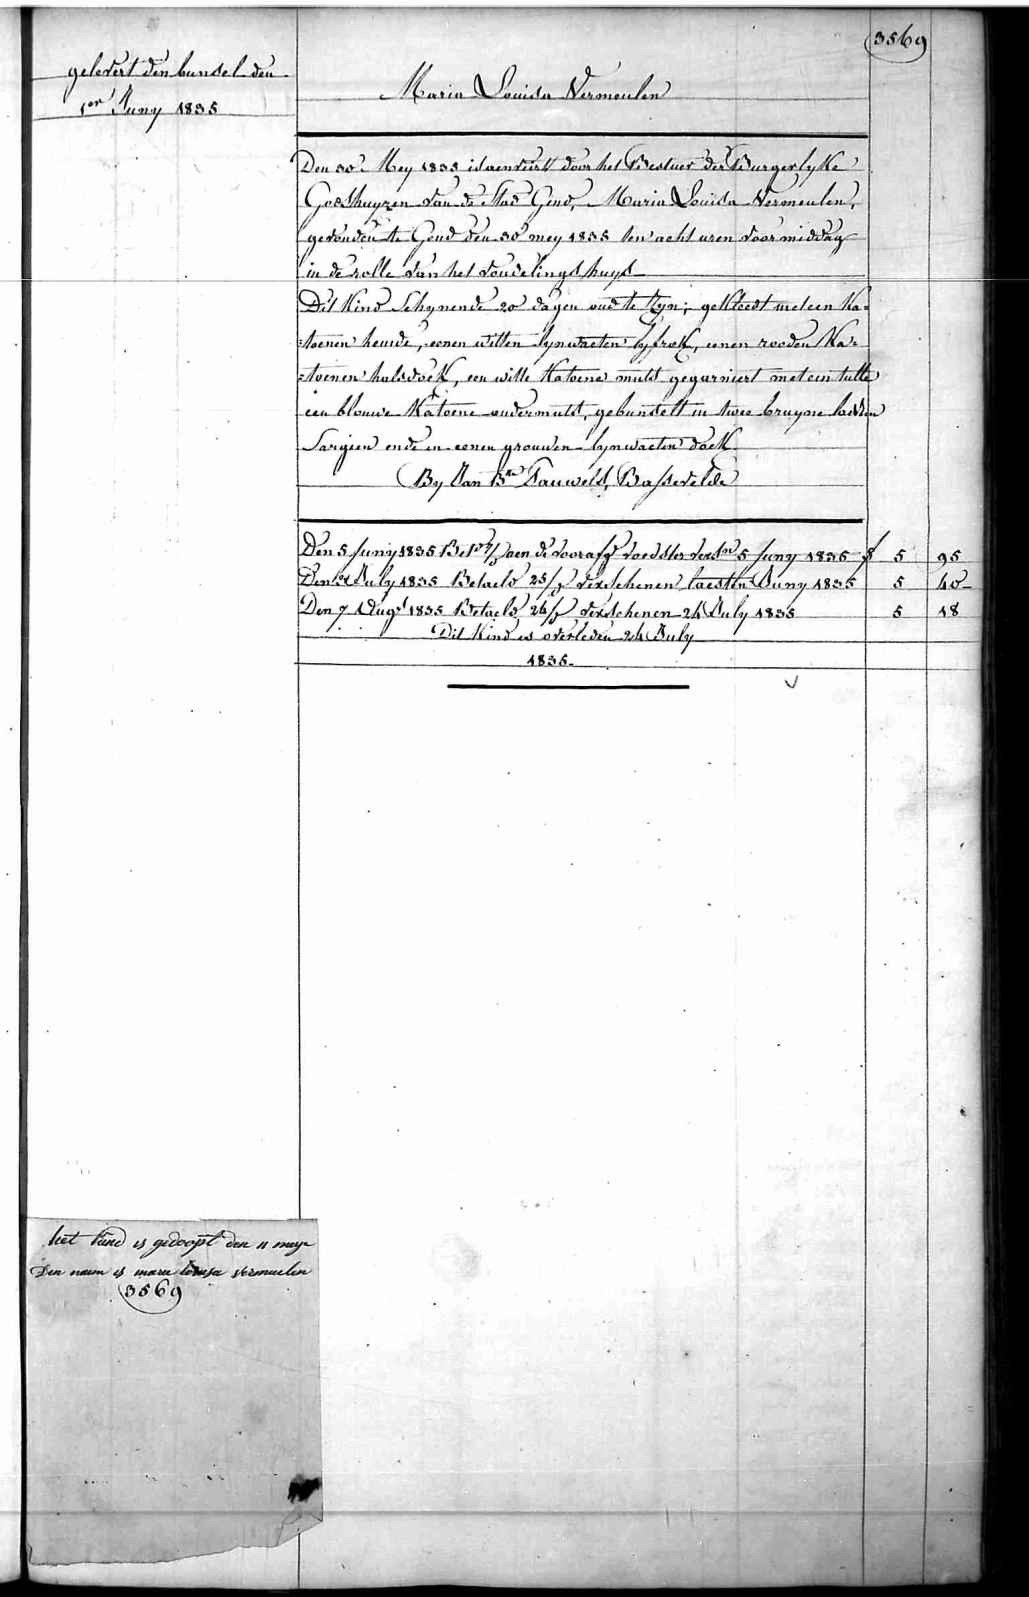 3569
gelevert den bunsel den
1en Juny 1835
Maria Louisa Vermeulen
Den 30 Mey 1835 is aenveirt door het Bestuer der Burgerlyke
Godshuyzen van de Stad Gend, Maria Louisa Vermeulen,
gevonden te Gend den 30 mey 1835 ten acht uren voormiddag
in de rolle van het vondelingshuys
Dit Kind Schynende 20 dagen oud te Zyn; gekleedt met een Ka=
=toenen hemde, eenen witten lynwaeten lyfrok, eenen rooden Ka=
=toenen halsdoek, een witte Katoene muts gegarniert met een tulle
een blauwe Katoene ondermuts, gebunselt in twee bruyne
Sargien ende in eenen grouwen lynwaeten doek
By Jan Bte Pauwels, Bassevelde
Den 5 Juny 1835 aen de voedster 5 Juny 1835 f 5 95
Den July 1835 Betaeld 25/ verschenen laesten Juny 1835 5 40
Den 7 Augt 1835 Betaeld 24/ verschenen 24 July 1835 5 18
Dit Kind is overleden 24 July
1835.
het kind is gedoopt den 11 meye
Den naem is marie lowisa vermeulen
3569